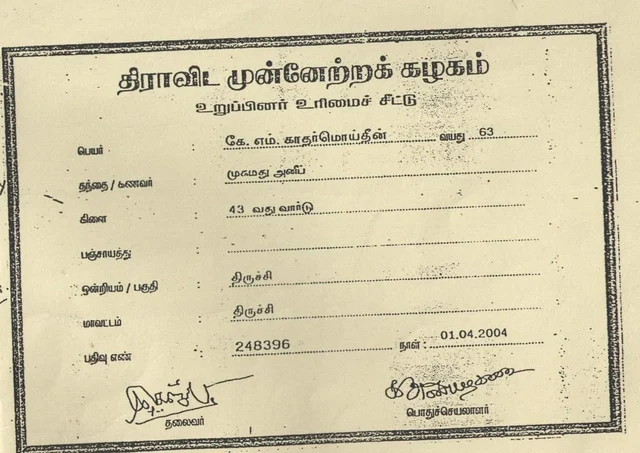 திராவிட முன்னேற்றக் கழகம்
உறுப்பினர் உரிமைச் சீட்டு
பெயர் : கே. எம். காதர்மொய்தீன் வயது : 63
தந்தை / கணவர் : முகமது அனீப்
கிளை : 43 வது வார்டு
பஞ்சாயத்து :
ஒன்றியம் / பகுதி : திருச்சி
மாவட்டம் : திருச்சி
பதிவு எண் : 248396 நாள் : 01.04.2004
தலைவர் பொதுச்செயலாளர்